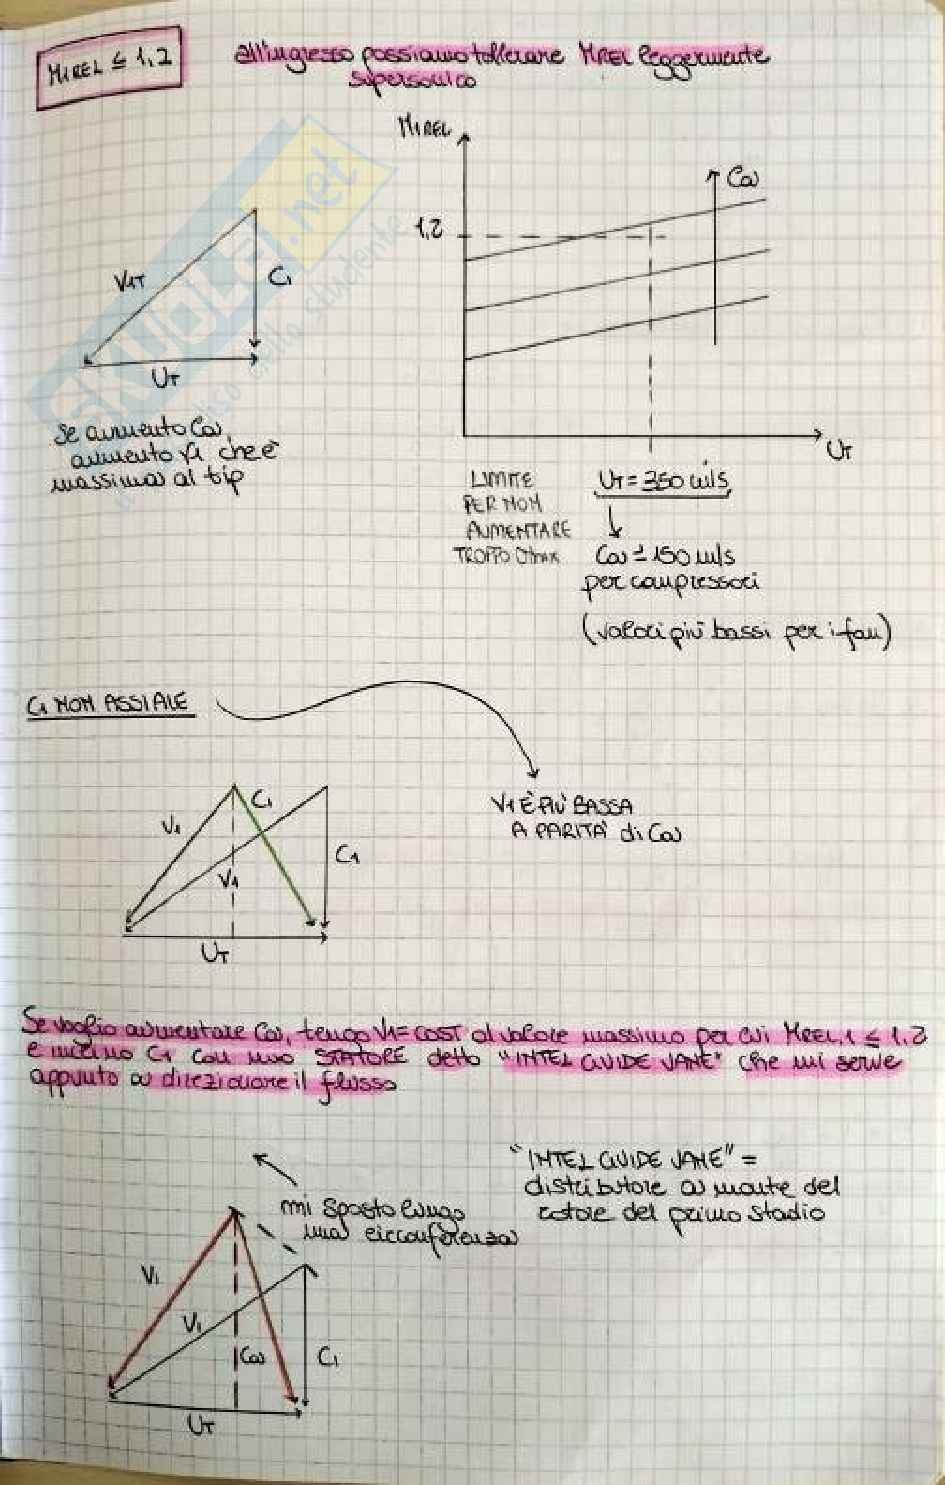 M1REL ≤ 1,2
all'ingresso possiamo tollerare MREL leggermente
supersonico
M1REL
Ca
1,2
V1T
C1
UT
UT
Se aumento Ca,
aumento V1 che è
massima al tip
LIMITE
PER NON
AUMENTARE
TROPPO σmax
UT = 350 m/s
Ca ≃ 150 m/s
per compressori
(valori più bassi per i fan)
C1 NON ASSIALE
V1 È PIÙ BASSA
A PARITÀ di Ca
C1
V1
C1
V1
UT
Se voglio aumentare Ca, tengo V1 = COST al valore massimo per cui MREL,1 ≤ 1,2
e inclino C1 con uno STATORE detto "INTEL GUIDE VANE" che mi serve
appunto a direzionare il flusso
"INTEL GUIDE VANE" =
distributore a monte del
rotore del primo stadio
mi sposto lungo
una circonferenza
V1
V1
Ca
C1
UT
SKUOLA.net